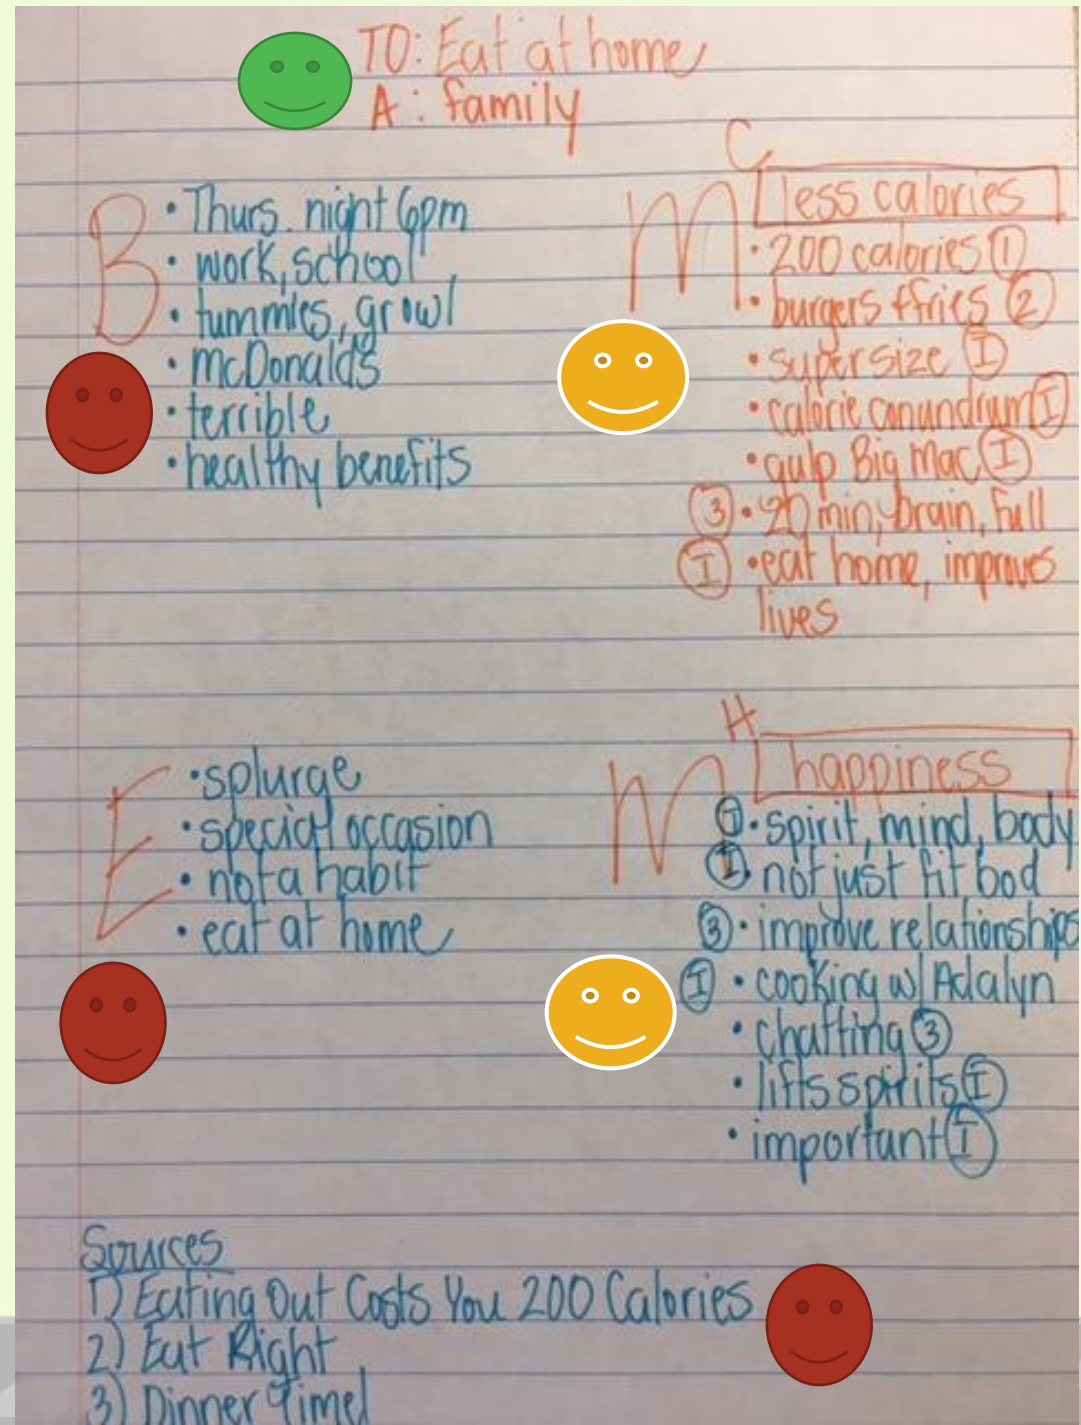 TO: Eat at home
A: family
B
• Thurs. night 6pm
• work, school
• tummies, growl
• McDonalds
• terrible
• healthy benefits
C
M
less calories
• 200 calories 1
• burgers + fries 2
• supersize I
• calorie conundrum I
• gulp Big Mac I
3 • 20 min, brain, full
I • eat home, improves
lives
E
• splurge
• special occasion
• not a habit
• eat at home
H
M
happiness
I • spirit, mind, body
I • not just fit bod
3 • improve relationships
I • cooking w/ Adalyn
• chatting 3
• lifts spirits I
• important I
Sources
1) Eating Out Costs You 200 Calories
2) Eat Right
3) Dinner Time!